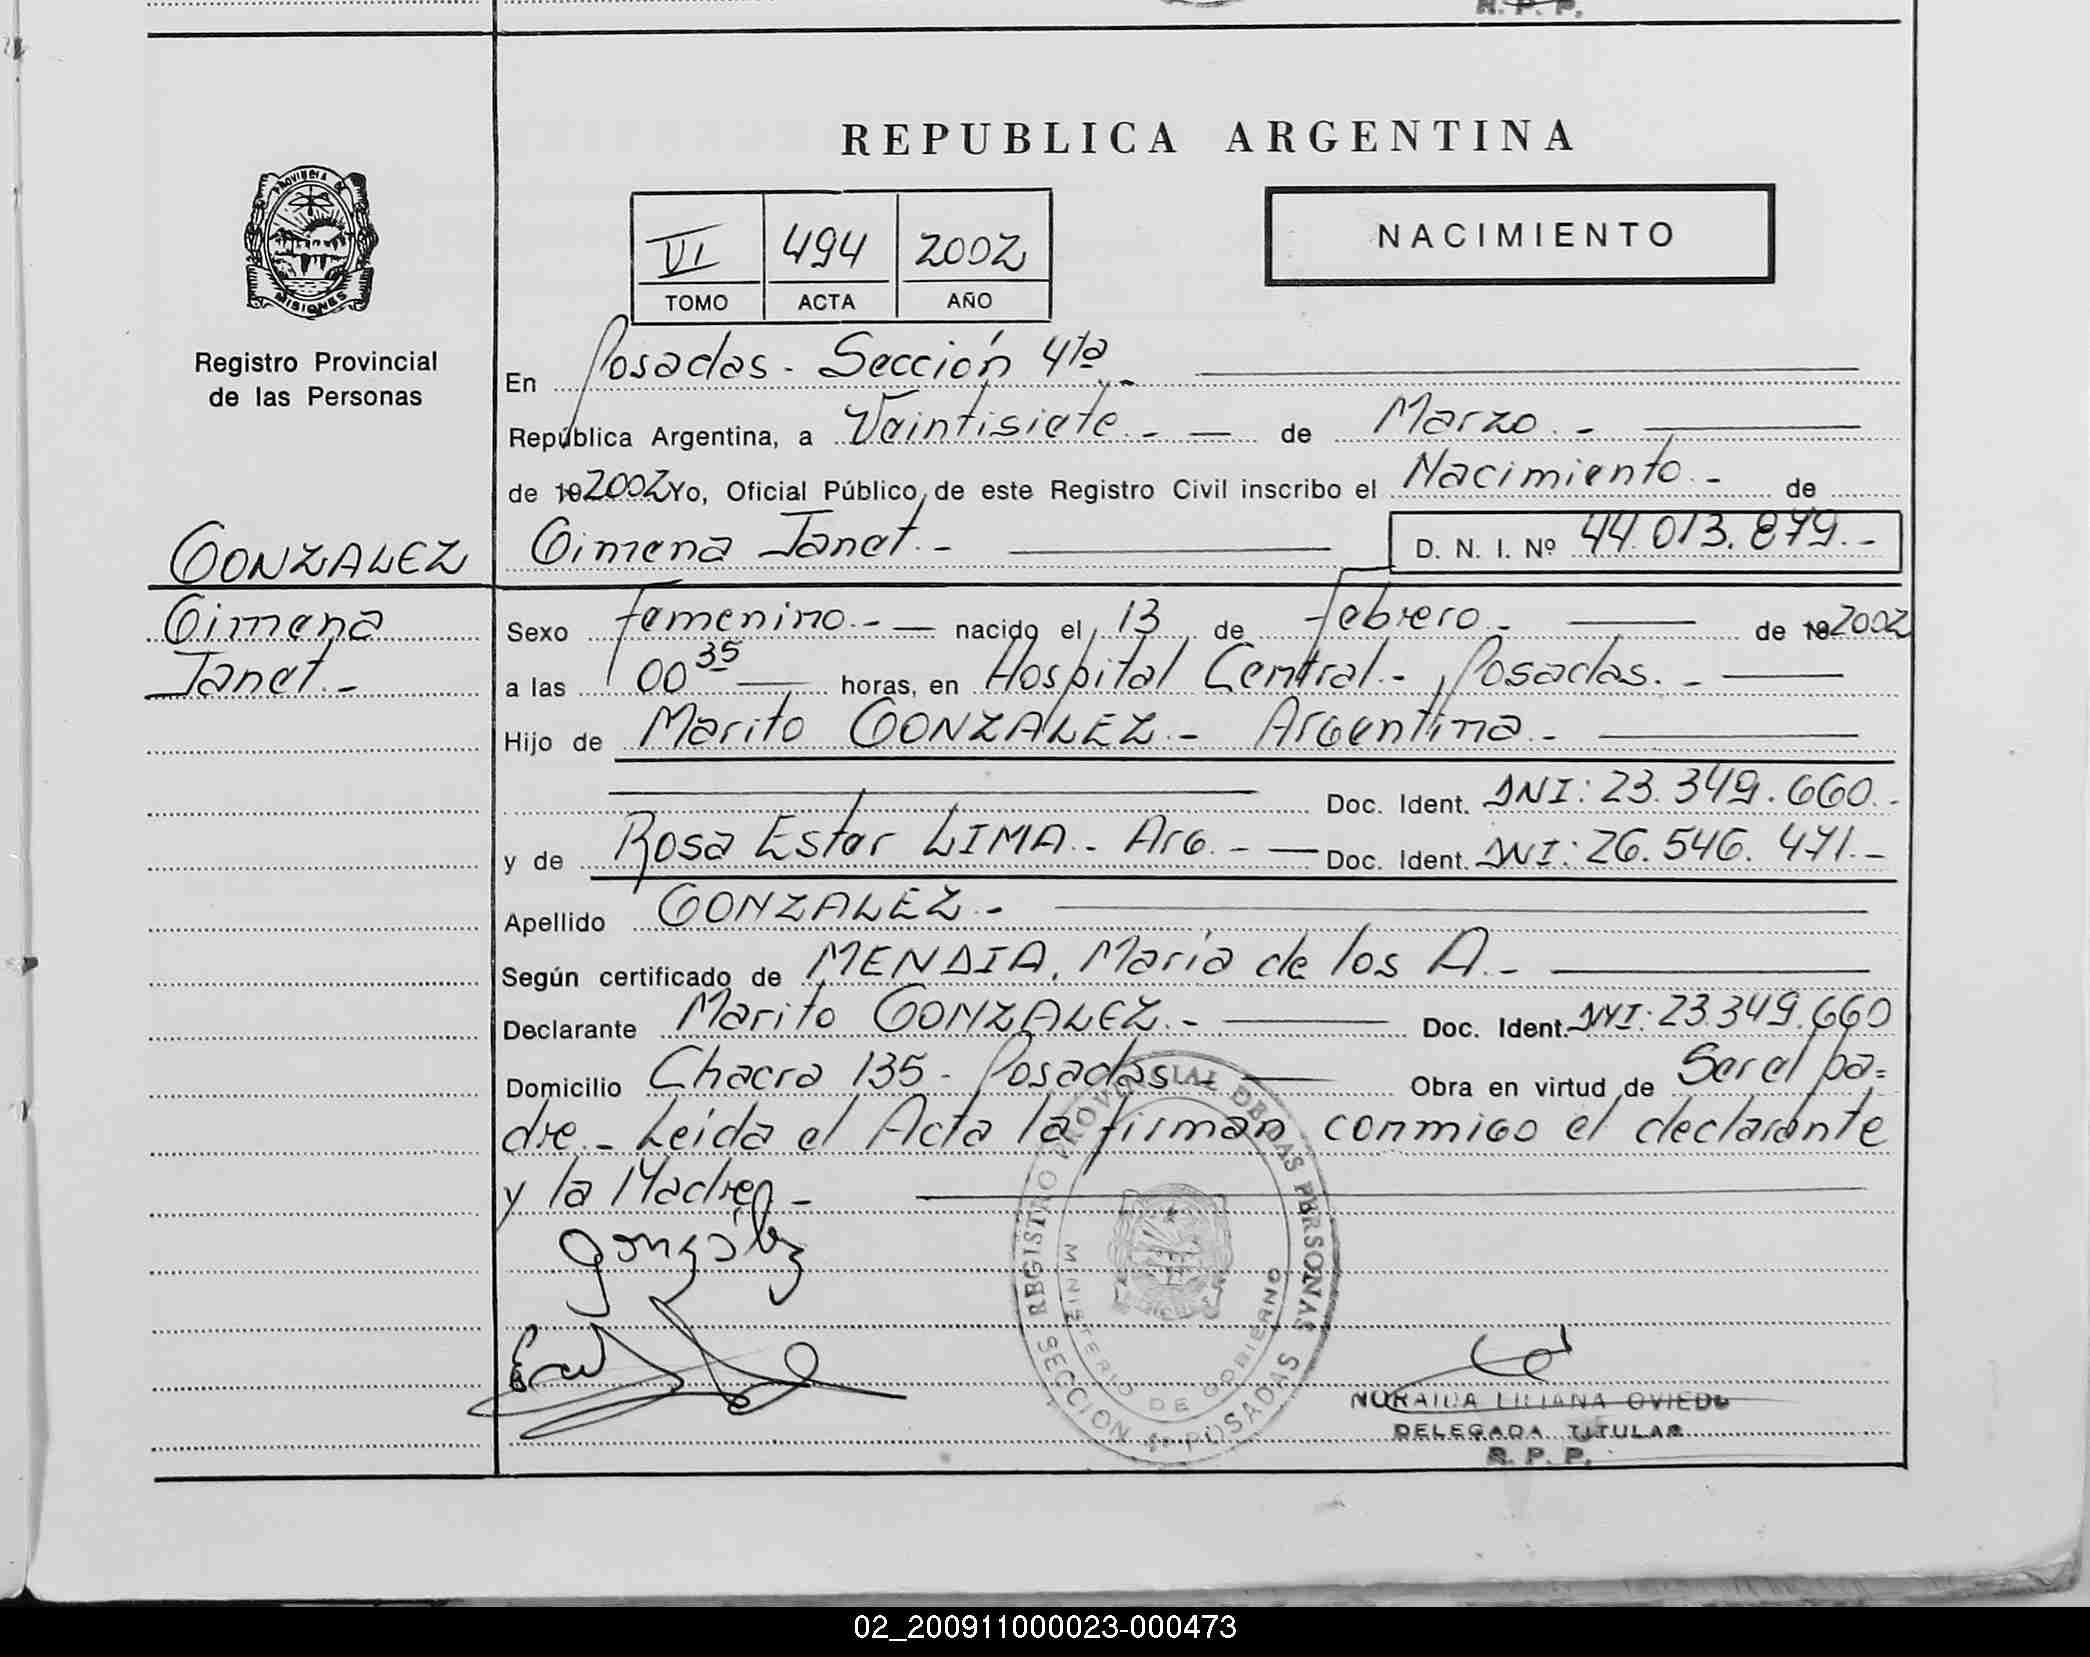 R. P. P.
REPUBLICA ARGENTINA
PROVINCIA DE
MISIONES
Registro Provincial
de las Personas
VI 494 2002
TOMO ACTA AÑO
NACIMIENTO
En Posadas - Sección 4ta
República Argentina, a Veintisiete.- — de Marzo.-
de 19 2002 Yo, Oficial Público de este Registro Civil inscribo el Nacimiento.- de
GONZALEZ
Gimena Janet.- D. N. I. Nº 44.013.879.-
Gimena
Janet.-
Sexo femenino.- — nacido el 13 de febrero.- de 19 2002
a las 00 35 horas, en Hospital Central.- Posadas.-
Hijo de Marito GONZALEZ.- Argentina.-
Doc. Ident. DNI: 23.349.660.-
y de Rosa Ester LIMA.- Arg.- — Doc. Ident. DNI: 26.546.471.-
Apellido GONZALEZ.-
Según certificado de MENDIA, María de los A.-
Declarante Marito GONZALEZ.- Doc. Ident. DNI: 23.349.660
Domicilio Chacra 135 - Posadas.- Obra en virtud de Ser el pa=
dre.- Leída el Acta la firman conmigo el declarante
y la Madre.-
gonzalez
REGISTRO PROVINCIAL DE LAS PERSONAS
MINISTERIO DE GOBIERNO
SECCION 4a POSADAS
NORAIDA LILIANA OVIEDO
DELEGADA TITULAR
R. P. P.
02_200911000023-000473